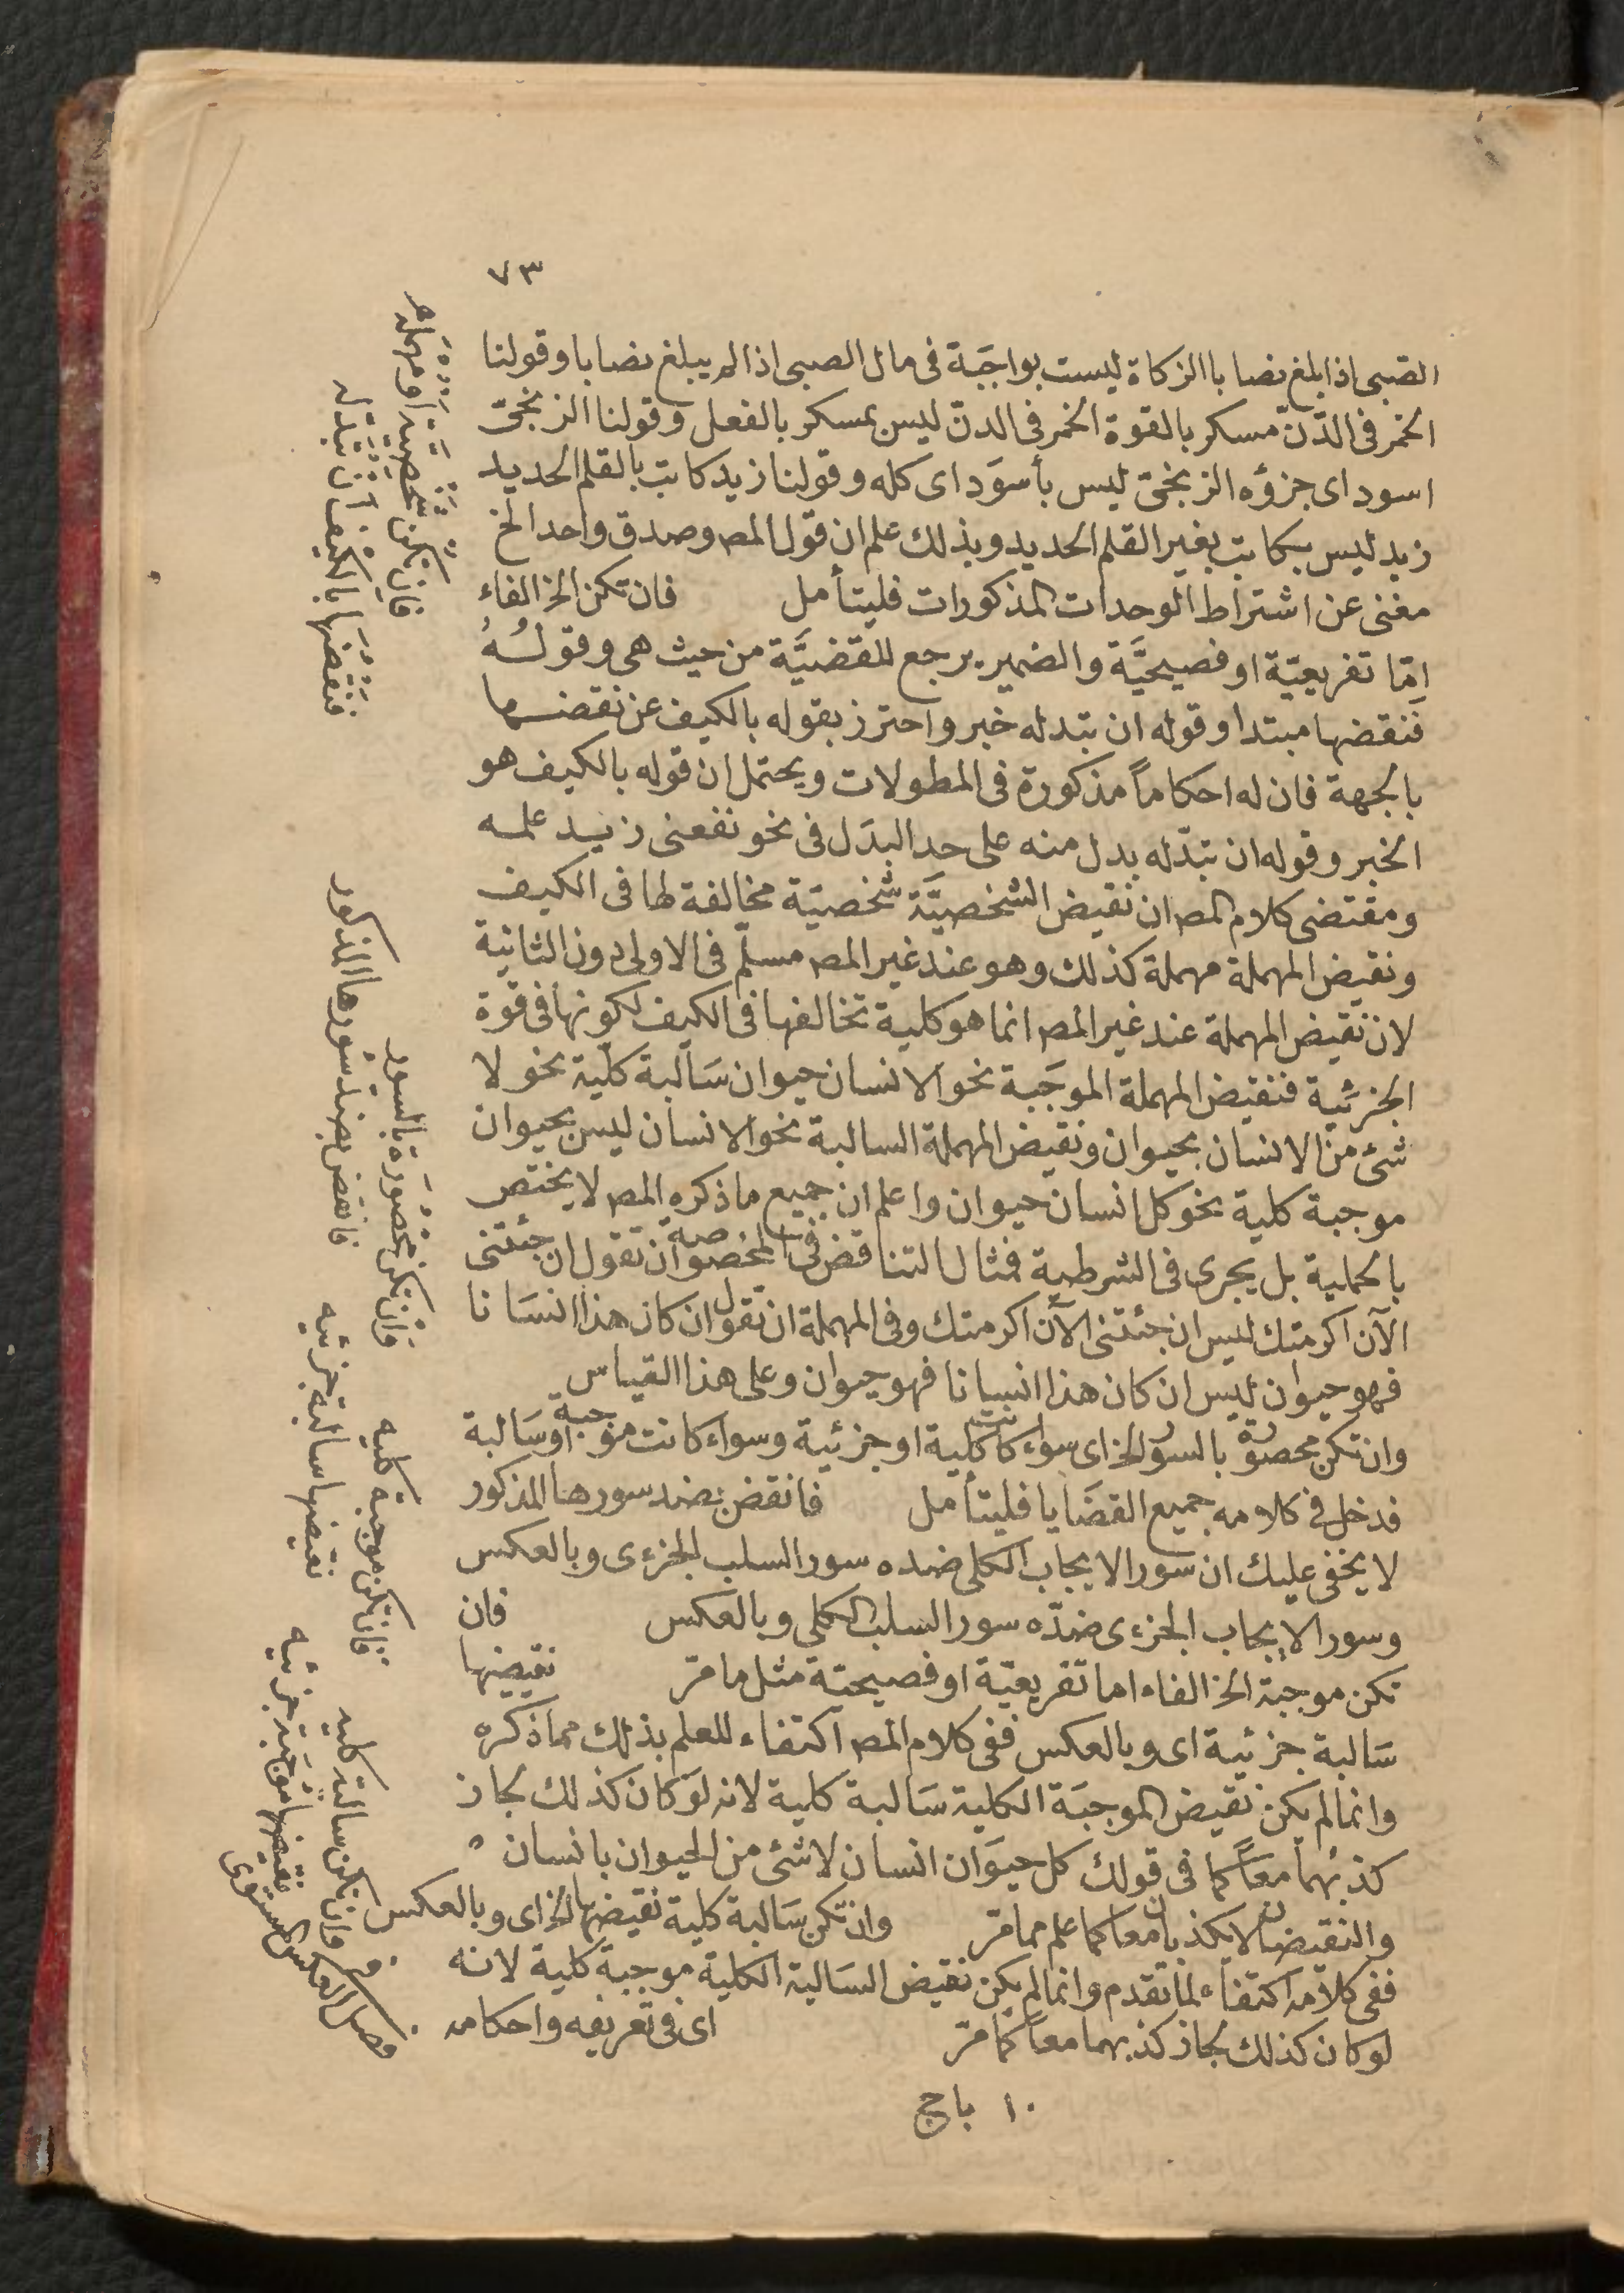 ٧٣
الصبى اذا بلغ نصابا الزكاة ليست بواجبَة فى مال الصبى اذا لم يبلغ نصابا وقولنا
الخمر فى الدّنّ مسكر بالقوة الخمر فى الدنّ ليس بمسكر بالفعل وقولنا الزنجىّ
اسود اى جزؤه الزنجىّ ليس بأسوَد اى كله وقولنا زيد كاتب بالقلم الحديد
زيد ليس بكاتب بغير القلم الحديد وبذلك علم ان قول المص وصدق واحد الخ
مغنى عن اشتراط الوحدات المذكورات فليتأمل فان تكن الخ الفاء
امّا تفريعيّة او فصيحيَّة والضمير يرجع للقضيَّة من حيث هى وقولُهُ
فَنقضها مبتدا وقوله ان تبدله خبر واحترز بقوله بالكيف عن نقضها
بالجهة فان له احكاماً مذكورة فى المطولات ويحتمل ان قوله بالكيف هو
الخبر وقوله ان تبدّله بدل منه على حد البدَل فى نحو نفعنى زيد علمه
ومقتضى كلام المص ان نقيض الشخصيَّة شخصيّة مخالفة لها فى الكيف
ونقيض المهملة مهملة كذلك وهو عند غير المص مسلّم فى الاولى دون الثانية
لان نقيض المهملة عند غير المص انما هو كلية تخالفها فى الكيف لكونها فى قوة
الجزئية فنقيض المهملة الموجَبة نحو الانسان حيوان سَالبة كلّية نحو لا
شئ من الانسان بحيوان ونقيض المهملة السالبة نحو الانسان ليس بحيوان
موجبة كلية نحو كل انسان حيوان واعلم ان جميع ما ذكره المص لا يختص
بالحملية بل يجرى فى الشرطية فمثال التناقض فى المخصوصة ان تقول ان جئتنى
الآن اكرمتك ليس ان جئتنى الآن اكرمتك وفى المهملة ان تقول ان كان هذا انسَانا
فهو حيوان ليس ان كان هذا انسانا فهو حيوان وعلى هذا القياس
وان تكن محصورة بالسور الخ اى سواء كانت كلية او جزئية وسواء كانت موجبة او سَالبة
فدخل فى كلامه جميع القضَايا فليتأمل فانقض بضد سورها المذكور
لا يخفى عليك ان سور الايجاب الكلى ضده سور السلب الجزءى وبالعكس
وسور الايجاب الجزءى ضدّه سور السلب الكلى وبالعكس فان
تكن موجبة الخ الفاء اما تفريعيّة او فصيحيّة مثل ما مرّ نقيضها
سَالبة جزئية اى وبالعكس ففى كلام المص اكتفاء للعلم بذلك مما ذكره
وانما لم يكن نقيض الموجبَة الكلية سَالبة كلية لانه لوَ كان كذلك لجاز
كذبهما معاً كما فى قولك كل حيوَان انسان لا شئ من الحيوان بانسان
والنقيضان لا يكذبان معا كما علم مما مرّ وان تكن سَالبة كلية نقيضها الخ اى وبالعكس
ففى كلامه اكتفاء لما تقدم وانما لم يكن نقيض السَالبة الكلية موجبة كلية لانه
لو كان كذلك لجاز كذبهما معا كما مرّ اى فى تعريفه واحكامه
١٠ باج
فان تكن شخصيّة او مهمله
فنقضها بالكيف ان تبدّله
وان تكن محصورة بالسور
فانقض بضد سورها المذكور
فان تكن موجبة كليه
نقيضها سالبة جزئيه
وان تكن سالبة كليه
نقيضها موجبة جزئيه
فصل فى العكس المستوى